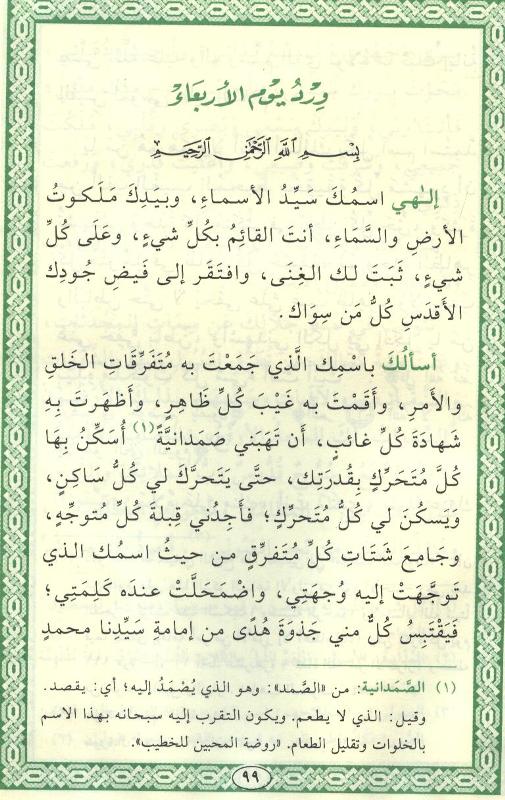 وِرْدُ يَوْمِ الأَربعَاءِ
بِسْمِ اللَّهِ الرَّحْمَٰنِ الرَّحِيمِ
إلـٰهي اسمُكَ سَيِّدُ الأسماءِ، وبيَدِكَ مَلَكوتُ
الأرضِ والسَّمَاءِ، أنتَ القائِمُ بكُلِّ شيءٍ، وعَلَى كُلِّ
شيءٍ، ثَبَتَ لك الغِنَى، وافتَقَر إلى فَيضِ جُودِك
الأقدَسِ كُلُّ مَن سِوَاك.
أسألُكَ باسْمِك الَّذي جَمَعْتَ به مُتَفَرِّقَاتِ الخَلقِ
والأمرِ، وأقَمْتَ به غَيْبَ كُلِّ ظَاهِرٍ، وأظهَرتَ بِهِ
شَهادَةَ كُلِّ غائبٍ، أَن تَهَبَني صَمَدانيَّةً(١) أُسَكِّنُ بِهَا
كُلَّ مُتَحَرِّكٍ بِقُدرَتِك، حتَّى يَتَحرَّكَ لي كُلُّ سَاكِنٍ،
وَيَسكُنَ لي كُلُّ مُتَحرِّكٍ؛ فأجِدُني قِبلَةَ كُلِّ مُتوجِّهٍ،
وجَامِعَ شَتَاتِ كُلِّ مُتَفرِّقٍ من حيثُ اسمُك الذي
تَوجَّهَتْ إليه وُجهَتِي، واضْمَحَلَّتْ عندَه كَلِمَتِي؛
فَيَقْتَبِسُ كُلٌّ مني جَذوَةَ هُدًى من إمامةِ سَيِّدِنا محمدٍ
(١) الصَّمَدانية: من «الصَّمد»: وهو الذي يُصْمَدُ إليه؛ أي: يقصد.
وقيل: الذي لا يطعم. ويكون التقرب إليه سبحانه بهذا الاسم
بالخلوات وتقليل الطعام. «روضة المحبين للخطيب».
٩٩